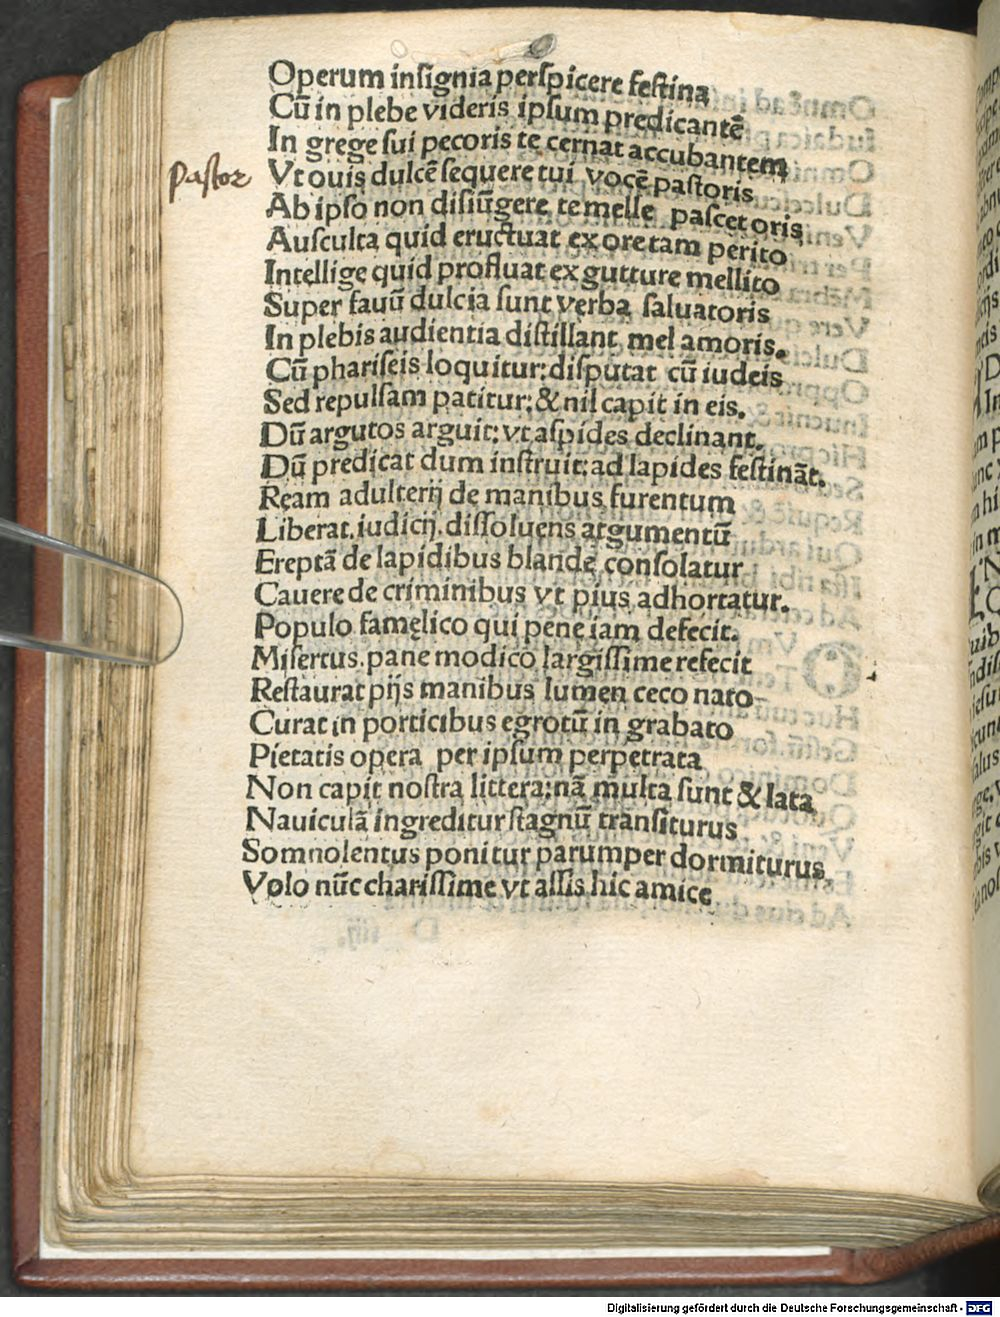 Operum insignia perspicere festina
Cū in plebe videris ipsum predicantē
In grege sui pecoris te cernat accubantem
Pastor
Vt ouis dulcē sequere tui vocē pastoris
Ab ipso non disiūgere te melle pascet oris
Ausculta quid eructuat ex ore tam perito
Intellige quid profluat ex gutture mellito
Super fauū dulcia sunt verba saluatoris
In plebis audientia distillant mel amoris.
Cū phariseis loquitur: disputat cū iudeis
Sed repulsam patitur: & nil capit in eis.
Dū argutos arguit: vt aspides declinant.
Dū predicat dum instruit: ad lapides festināt.
Ream adulterij de manibus furentum
Liberat. iudicij. dissoluens argumentū
Ereptā de lapidibus blande consolatur
Cauere de criminibus vt pius adhortatur.
Populo famelico qui pene iam defecit.
Misertus. pane modico largissime refecit
Restaurat pijs manibus lumen ceco nato
Curat in porticibus egrotū in grabato
Pietatis opera per ipsum perpetrata
Non capit nostra littera: nā multa sunt & lata
Nauiculā ingreditur stagnū transiturus
Somnolentus ponitur parumper dormiturus
Volo nūc charissime vt assis hic amice
Digitalisierung gefördert durch die Deutsche Forschungsgemeinschaft - DFG